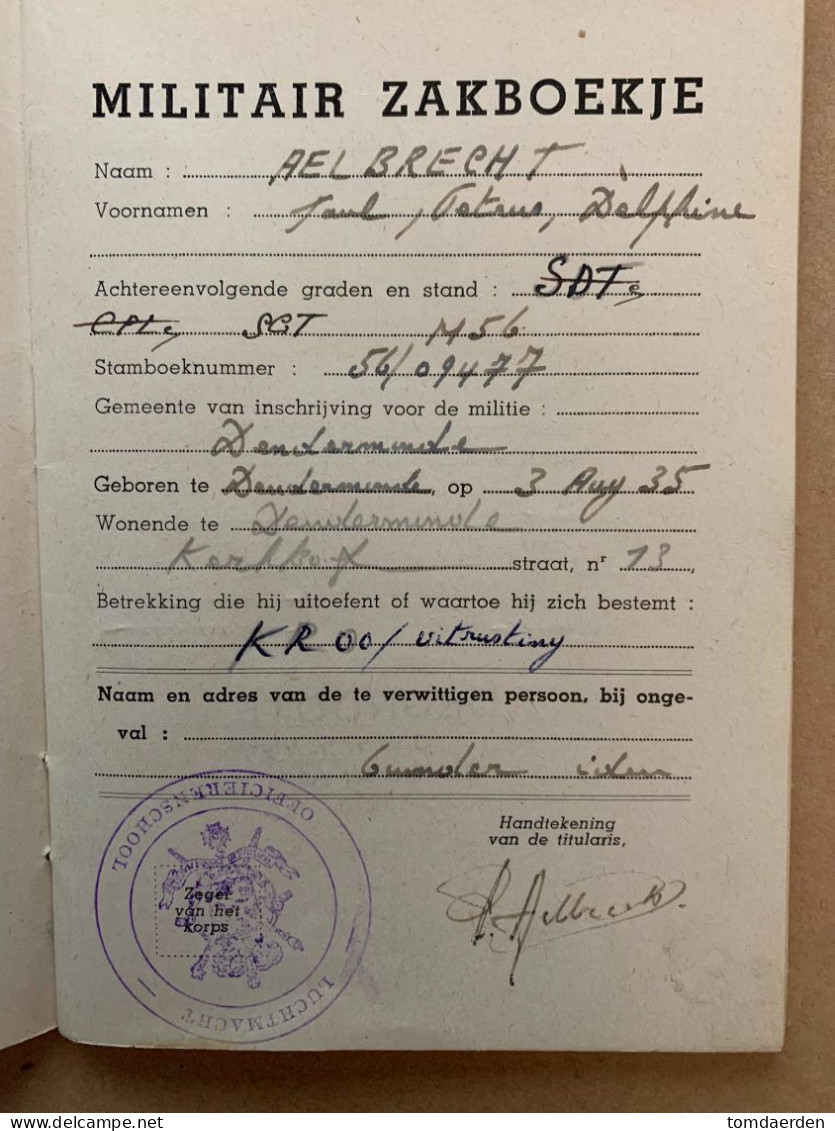 MILITAIR ZAKBOEKJE
Naam : AELBRECHT
Voornamen : Paul, Petrus, Delphine
Achtereenvolgende graden en stand : SDT
CPL SGT M56
Stamboeknummer : 56/09477
Gemeente van inschrijving voor de militie :
Dendermonde
Geboren te Dendermonde, op 3 Aug 35
Wonende te Dendermonde
Kerkhof straat, nr 13,
Betrekking die hij uitoefent of waartoe hij zich bestemt :
KROO/ uitrusting
Naam en adres van de te verwittigen persoon, bij onge-
val :
idem
Handtekening
van de titularis,
Zegel
van het
korps
OFFICIERENSCHOOL
LUCHTMACHT
delcampe.net
tomdaerden